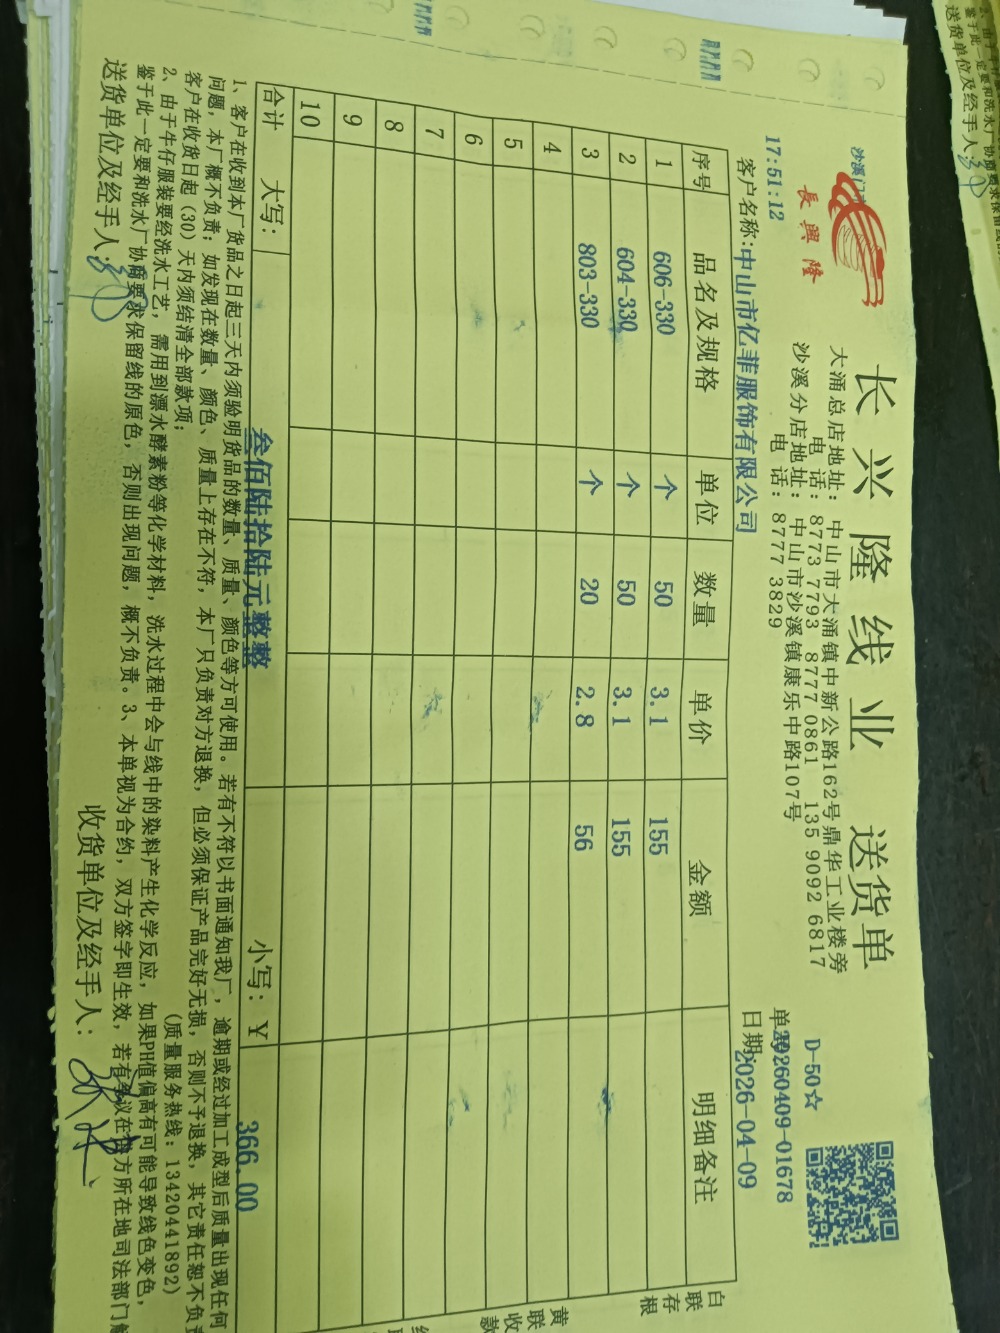 长兴隆线业 送货单
長興隆
大涌总店地址: 中山市大涌镇中新公路162号鼎华工业楼旁
电 话: 8773 7793 8777 0861 135 9092 6817
沙溪分店地址: 中山市沙溪镇康乐中路107号
电 话: 8777 3829
D-50☆
20260409-01678
17:51:12
客户名称:中山市亿菲服饰有限公司
日期:2026-04-09
序号 品名及规格 单位 数量 单价 金额 明细备注
1 606-330 个 50 3.1 155
2 604-330 个 50 3.1 155
3 803-330 个 20 2.8 56
4
5
6
7
8
9
10
合计 大写: 叁佰陆拾陆元整整 小写: ¥ 366.00
1、客户在收到本厂货品之日起三天内须验明货品的数量、质量、颜色等方可使用。若有不符以书面通知我厂,逾期或经过加工成型后质量出现任何
问题,本厂概不负责;如发现在数量、颜色、质量上存在不符,本厂只负责对方退换,但必须保证产品完好无损,否则不予退换,其它责任恕不负责
客户在收货日起(30)天内须结清全部款项;
(质量服务热线:13420441892)
2、由于牛仔服装要经洗水工艺,需用到漂水酵素粉等化学材料,洗水过程中会与线中的染料产生化学反应,如果PH值偏高有可能导致线色变色,
鉴于此一定要和洗水厂协商要求保留线的原色,否则出现问题,概不负责。3、本单视为合约,双方签字即生效,若有争议在供方所在地司法部门
送货单位及经手人:
收货单位及经手人:
白联存根
黄联收款